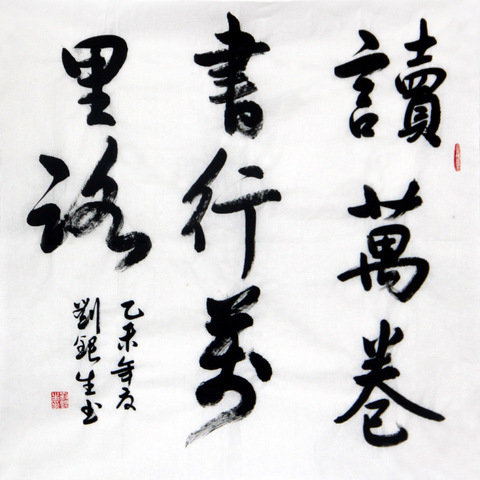 讀萬卷
書行萬
里路
乙未年夏
劉銀生書